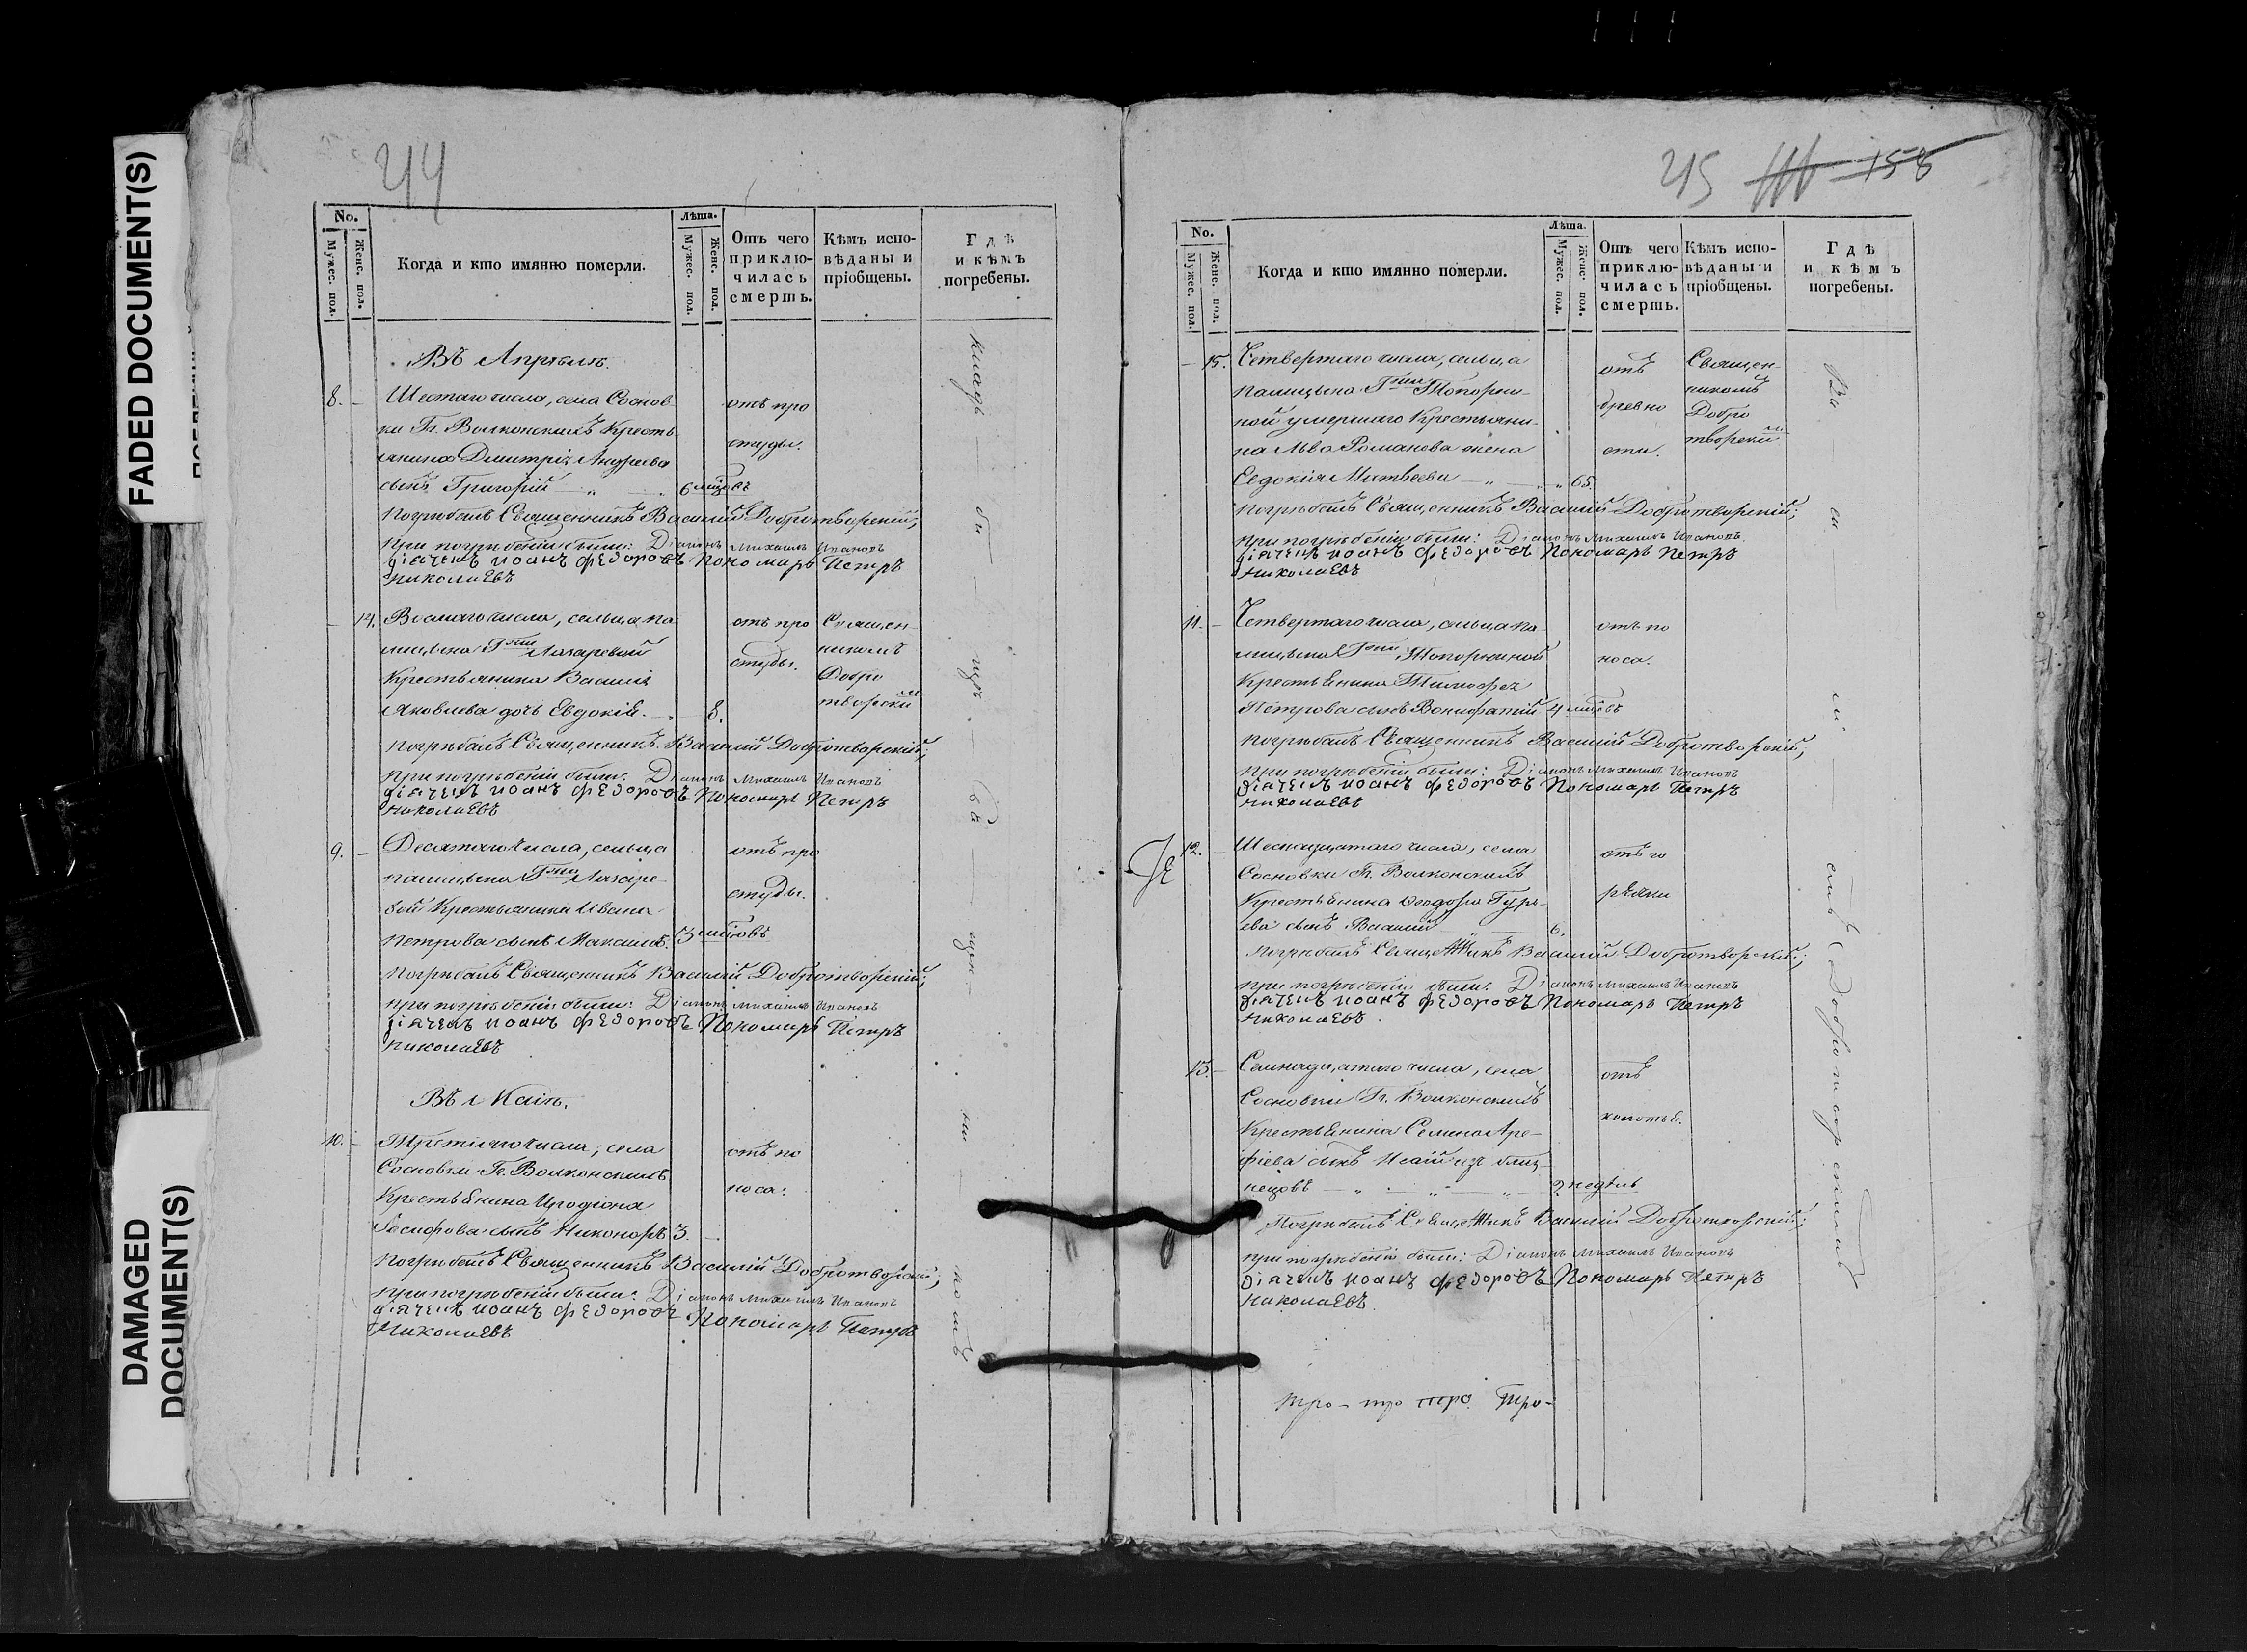 FADED DOCUMENT(S)
DAMAGED
DOCUMENT(S)
44
No.
Мужес. пол.
Женс. пол.
Когда и кто имянно померли.
Лѣта.
Мужес. пол.
Женс. пол.
Отъ чего
приклю-
чилась
смерть.
Кѣмъ испо-
вѣданы и
пріобщены.
Гдѣ
и кѣмъ
погребены.
Въ Апрѣлѣ.
8. — Шестаго числа, села Соснов отъ про
ки Гг. Волконскихъ Кресть студы.
янина Дмитрія Андреева
сынъ Григорій — „ — 6
Погребалъ Священникъ Василій Добротворскій;
при погребеніи были: Діаконъ Михаилъ Ивановъ
діячекъ Иоанъ Федоровъ Пономарь Петръ
Николаевъ
— 14. Восмаго числа, сельца Па отъ про Священ
Лазаревой студы. никомъ
Крестьянина Василія Добро
Яковлева дочь Евдокія. — 8. творским
Погребалъ Священникъ Василій Добротворскій;
при погребеніи были: Діаконъ Михаилъ Ивановъ
діячекъ Иоанъ Федоровъ Пономарь Петръ
Николаевъ
9. — Десятаго числа, сельца отъ про
Лазаре студы.
вой Крестьянина Ивана
Петрова сынъ Максимъ. 3
Погребалъ Священникъ Василій Добротворскій;
при погребеніи были: Діаконъ Михаилъ Ивановъ
діячекъ Иоанъ Федоровъ Пономарь Петръ
Николаевъ
Въ Маіѣ.
10. — Третіяго числа, села отъ по
Сосновки Гг. Волконскихъ носа.
Крестьянина Иродіона
сынъ Никоноръ 3. —
Погребалъ Священникъ Василій Добротворскій;
при погребеніи были: Діаконъ Михаилъ Ивановъ
діячекъ Иоанъ Федоровъ Пономарь Петръ
Николаевъ
45 158
No.
Мужес. пол.
Женс. пол.
Когда и кто имянно померли.
Лѣта.
Мужес. пол.
Женс. пол.
Отъ чего
приклю-
чилась
смерть.
Кѣмъ испо-
вѣданы и
пріобщены.
Гдѣ
и кѣмъ
погребены.
— 15. Четвертаго числа, сельца отъ Священ-
Топорни- древно никомъ
ной умершаго Крестьяни- сти. Добро
на Льва Романова жена творским
Евдокія Матвеева — „ — „ 65.
Погребалъ Священникъ Василій Добротворскій;
при погребеніи были: Діаконъ Михаилъ Ивановъ
діячекъ Иоанъ Федоровъ Пономарь Петръ
Николаевъ
11. — Четвертаго числа, сельца Па- отъ по
Топорниной носа.
Крестьянина Тимофея
Петрова сынъ Вонифатий 4
Погребалъ Священникъ Василій Добротворскій;
при погребеніи были: Діаконъ Михаилъ Ивановъ
діячекъ Иоанъ Федоровъ Пономарь Петръ
Николаевъ
12. — Шеснадцатаго числа, села отъ го
Сосновки Гг. Волконскихъ рячки
Крестьянина Ѳеодора Гурь-
ева сынъ Василий 6.
Погребалъ Священникъ Василий Добротворскій;
при погребеніи были: Діаконъ Михаилъ Ивановъ
діячекъ Иоанъ Федоровъ Пономарь Петръ
Николаевъ
13. — Семнадцатаго числа, села отъ
Сосновки Гг. Волконскихъ колотья.
Крестьянина Семена Аре-
фіева сынъ Исаій изъ близ
нецовъ — „ — „ — 2 недѣль
Погребалъ Священникъ Василий Добротворскій;
при погребеніи были: Діаконъ Михаилъ Ивановъ
діячекъ Иоанъ Федоровъ Пономарь Петръ
Николаевъ